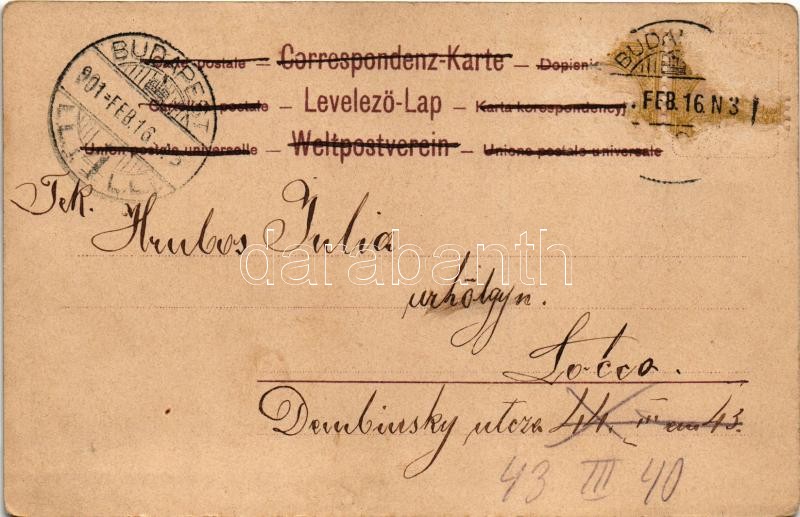 Carte postale — Correspondenz-Karte — Dopisnic
postale — Levelező-Lap — Karta korespondencyj
Union postale universelle — Weltpostverein — Unione postale universale
BUDAPEST
901 FEB. 16.
BUDA
FEB. 16. N 3
Tek.
Hrubos Julia
darabanth
urhölgyn.
Loćco.
Dembinsky utcza 44. III em 43.
43 III 40